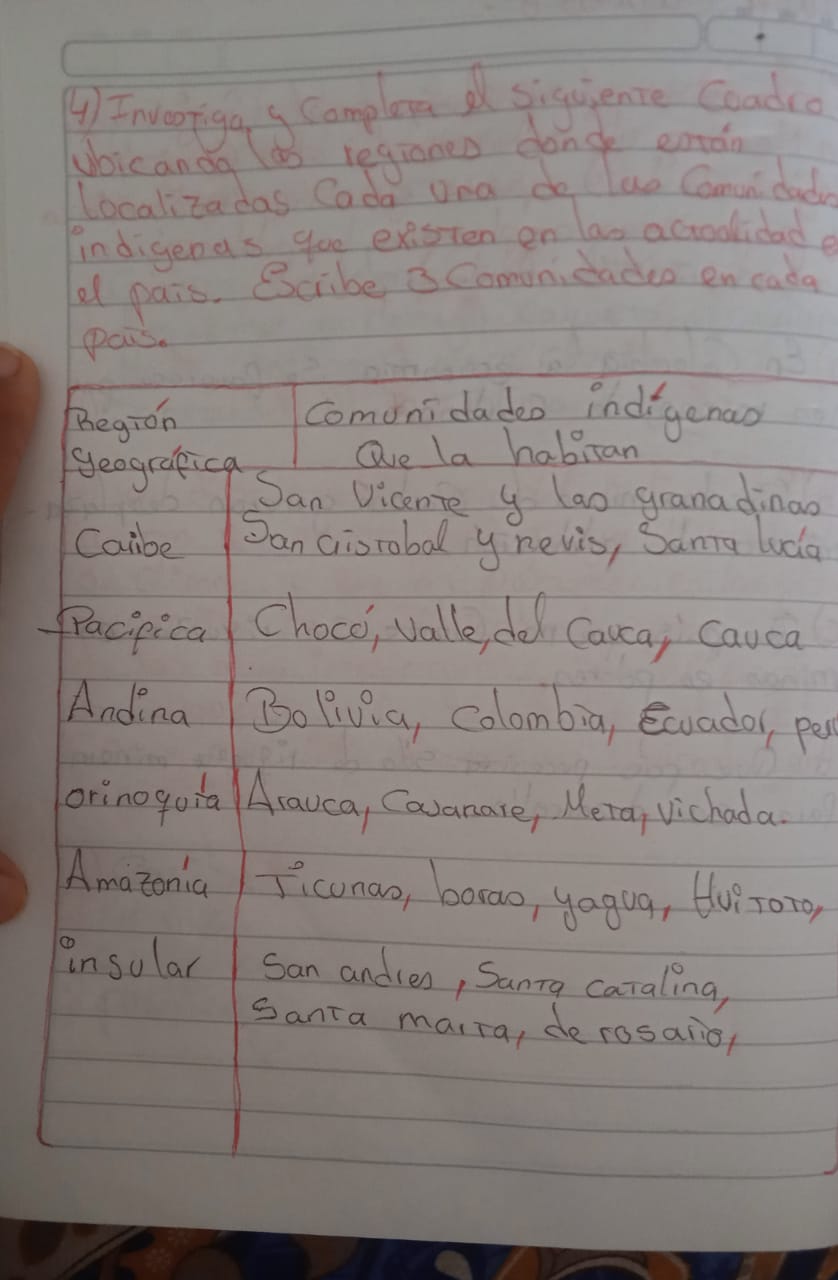 4) Investiga y Completa el siguiente Cuadro
Ubicando las regiones donde están
localizadas Cada una de las Comunidades
indigenas que existen en las actualidad e
el pais. Escribe 3 Comunidades en cada
pais.
Región Comunidades indígenas
geográfica Que la habitan
San Vicente y las granadinas
Caribe San Cristobal y nevis, Santa lucía
Pacifica Chocó, Valle, del Cauca, Cauca
Andina Bolivia, Colombia, Ecuador, per
orinoquía Arauca, Casanare, Meta, Vichada.
Amazonía Ticunas, boras, yagua, Huitoto,
insular San andres, Santa catalina,
Santa marta, de rosario,